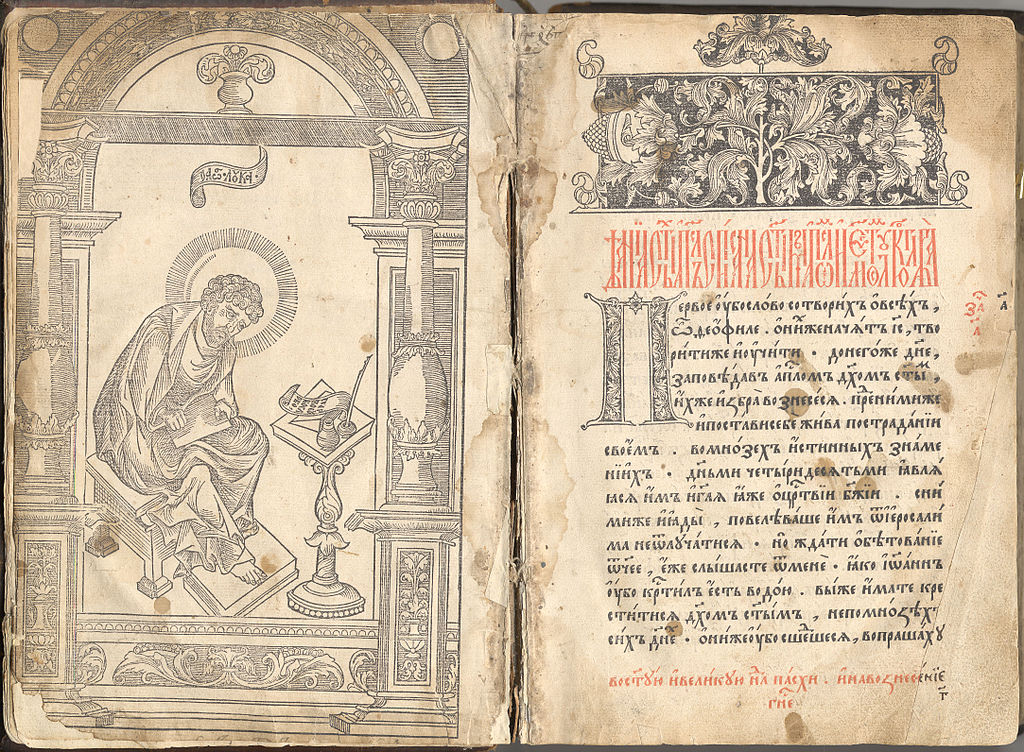 ЛѸКА
Первое ѹ҆бо слово сотворихъ ѡ҆ всѣхъ ,
ѽ , деѡ҆филе . ѡ҆ ниже начатъ і҆с , тво
рити же и҆ ѹ҆чити · до него же дн҃е ,
заповѣдавъ а҆пⷭ҇ломъ дх҃омъ ст҃ымъ ,
и҆хже и҆збра вознесесѧ . пред ними же
и҆ постави себе жива по страданїи
своемъ . во мнозехъ и҆стинныхъ знаме
нїихъ · дньми четыридесѧтьми ꙗ҆влѧ
ꙗсѧ и҆мъ и҆ гл҃ѧ ꙗ҆же ѡ҆ црⷭ҇твїи бж҃їи . сни
ми же и҆ ꙗ҆ды , повелѣваше и҆мъ ѿ і҆еросали
ма не ѿлѹчатисѧ · но ждати ѡ҆бѣтованїе
ѿчее , є҆же слышасте ѿ мене · ꙗ҆ко і҆ѡ҆аннъ
ѹ҆бо крⷭ҇тилъ є҆сть водою . вы же и҆мате кре
ститисѧ дх҃омъ ст҃ымъ , не по мнозѣхъ
сихъ дн҃е · ѡ҆ни же ѹ҆бо сшедшесѧ , вопрашахѹ
в ост҃ѹю и҆ великѹю нⷣлѧ пасхи . и҆ на вознесенїе
гн҃е